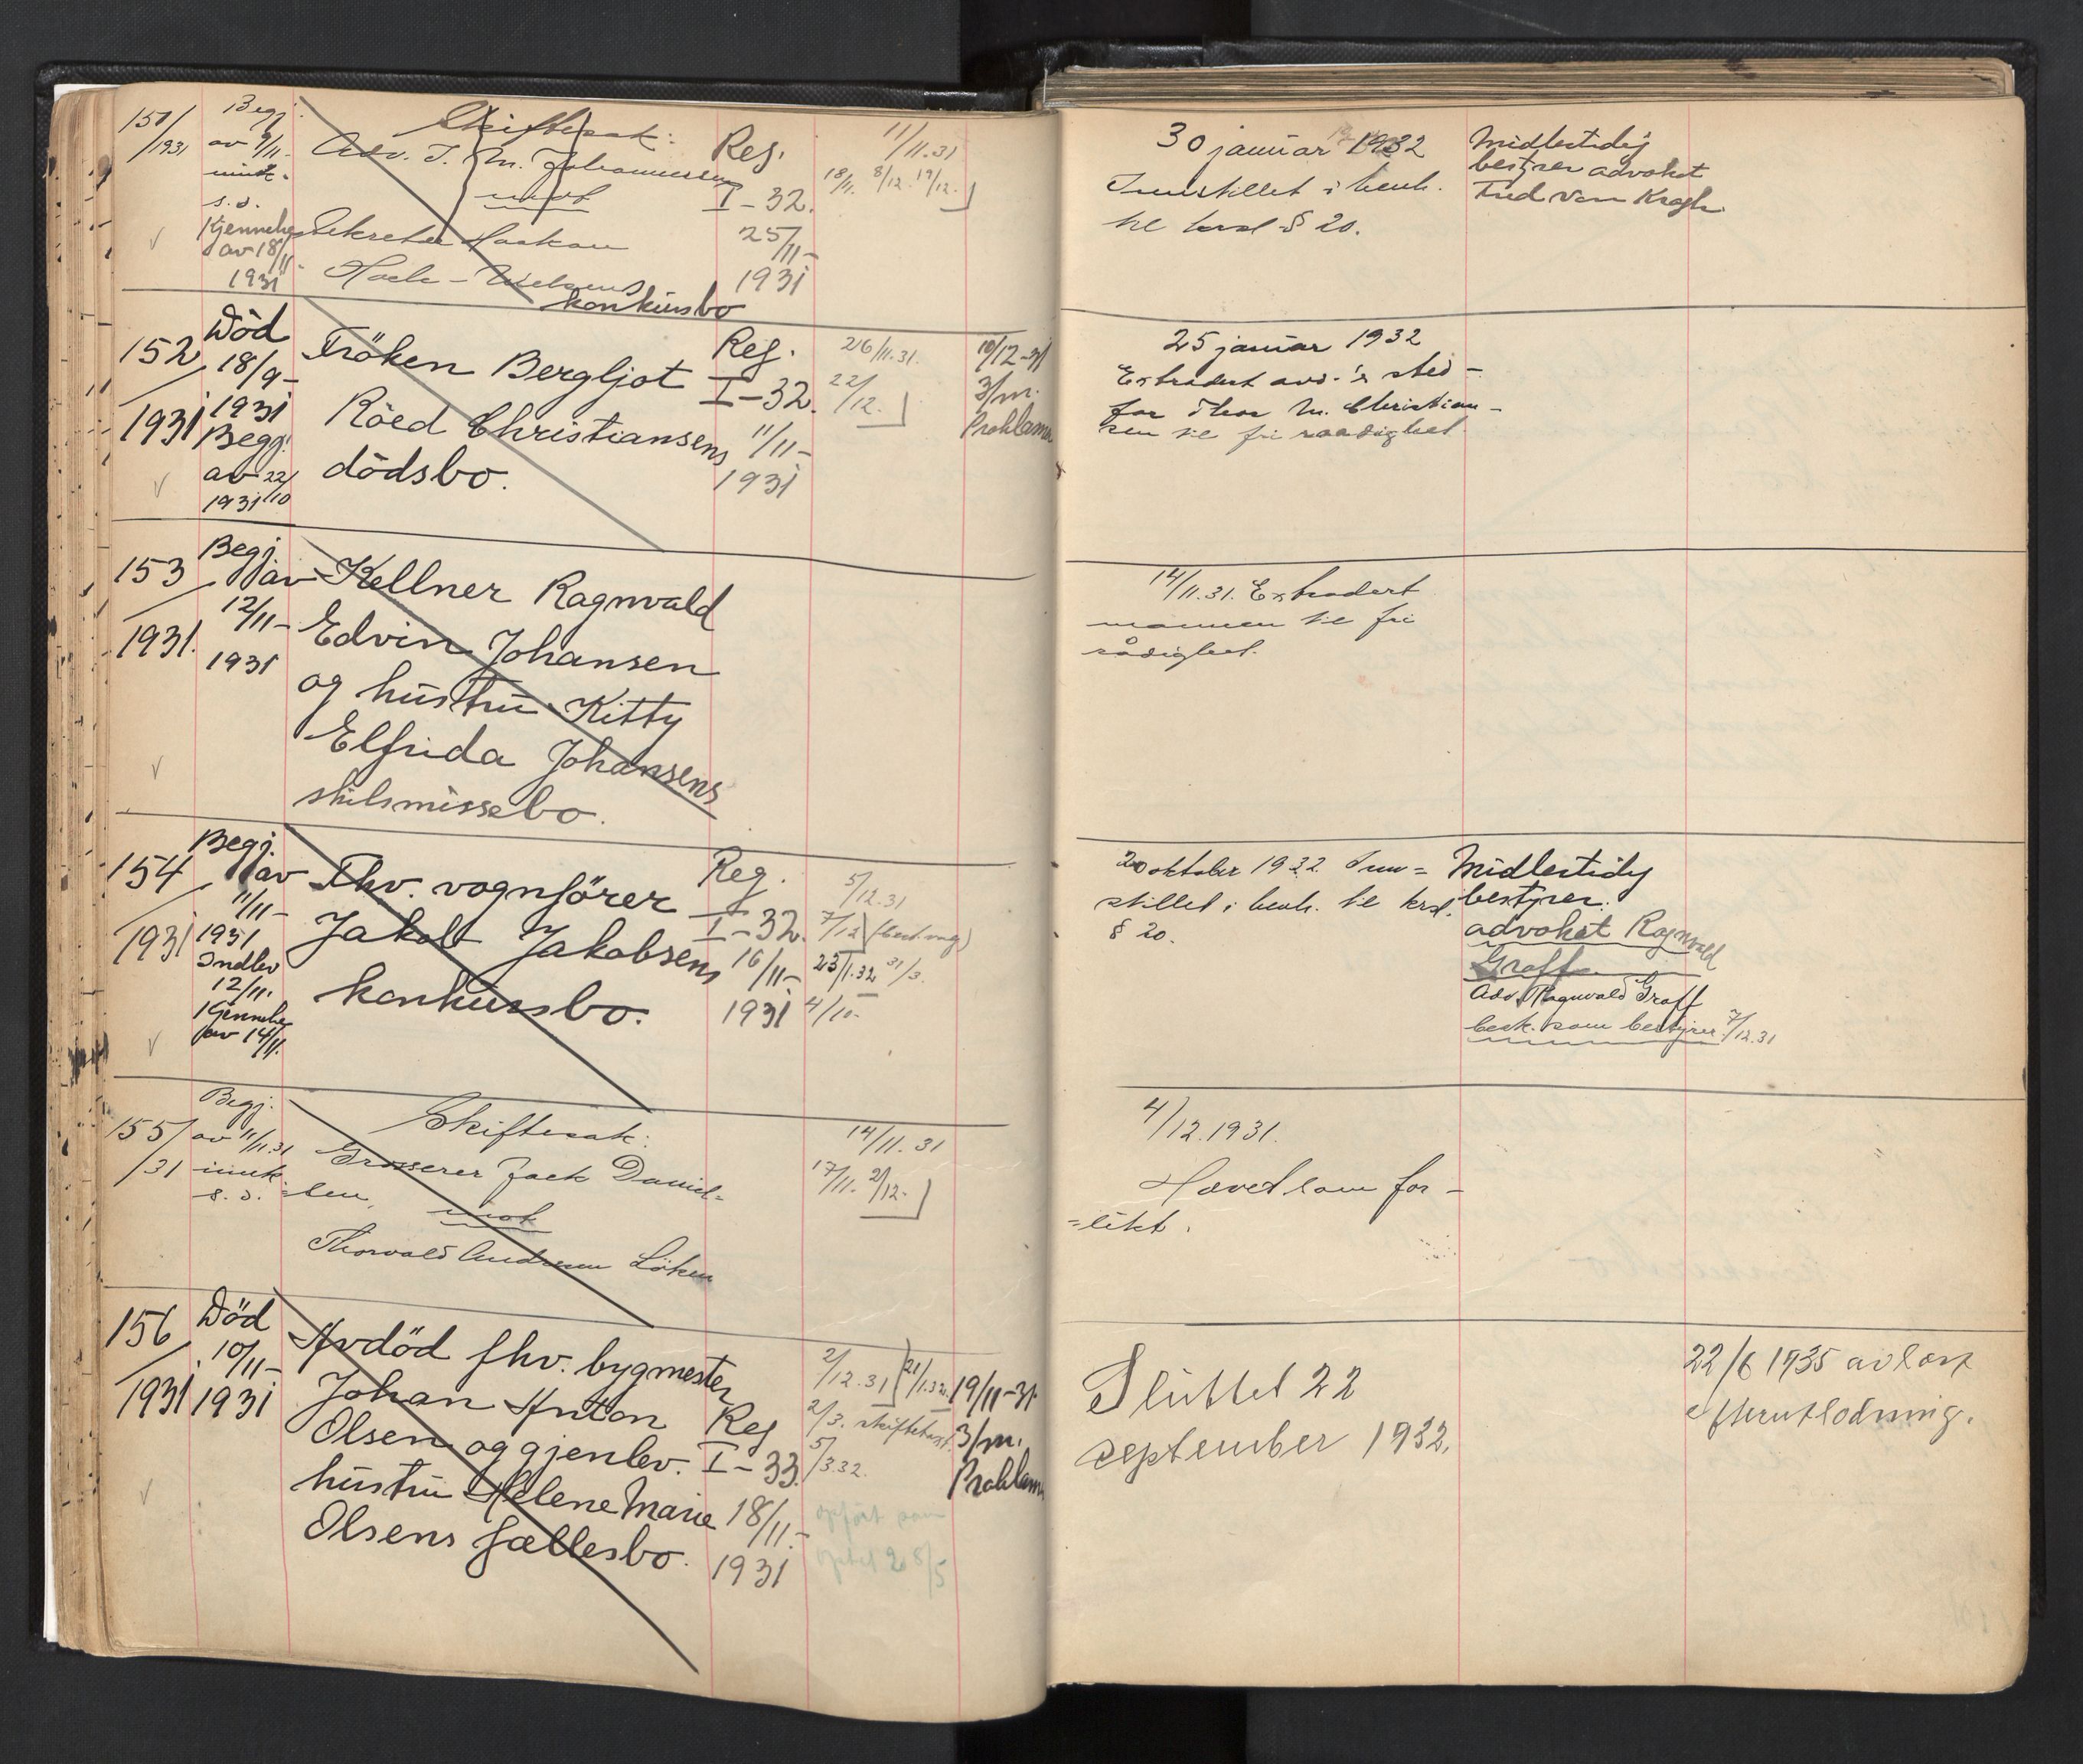 151/1931
Begj.
av 9/11.
s.d.
Kjennelse
av 18/11.
1931
Skiftesak:
Adv. J. M. Johannessen
mot
Sekretær Haakon
konkursbo
Reg.
I-32.
25/11-
1931
11/11.31
18/11. 8/12. 19/12.
30 januar 1932
Innstillet i henh.
til krsl § 20.
Midlertidig
bestyrer advokat
152/1931
Död
18/9-
1931
Begj.
av 22/10
1931
Fröken Bergljot
Röed Christiansens
dödsbo.
Reg.
I-32.
11/11-
1931
26/11.31.
22/12.
10/12-31
3/m.
Proklama
25 januar 1932
Extradert
for Thor M. Christian-
sen til fri raadighet
153/1931.
Begj.
av
12/11-
1931
Kellner Ragnvald
Edvin Johansen
og hustru Kitty
Elfrida Johansens
skilsmissebo.
14/11.31. Extradert
mannen til fri
rådighet.
154/1931
Begj.
av
11/11-
1931
Indlev
12/11.
Kjennelse
av 14/11.
Fhv. vognförer
Jakob Jakobsens
konkursbo.
Reg.
I-32.
16/11-
1931
5/12.31
7/12
23/1.32 31/3.
4/10-
20 oktober 1932 Inn=
stillet i henh. til krsl.
§ 20.
Midlertidig
bestyrer:
advokat Ragnvald
Graff
Adv. Ragnvald Graff
besk. som bestyrer 7/12.31
155/31
Begj.
av 11/11.31
innk.
s.d.
Skiftesak:
Grosserer Jack Daniel=
sen,
mot
Thorvald Andersen Löken
14/11.31
17/11. 2/12.
4/12.1931.
Hævet som for-
=likt.
156/1931
Död
10/11-
1931
Avdöd fhv. bygmester
Johan Anton
Olsen og gjenlev.
hustru Helene Marie
Olsens fællesbo.
Reg
I-33.
18/11.-
1931
2/12.31 21/1.32.
2/3. skiftetakst.
5/3.32.
19/11-31
3/m.
Proklama
Sluttet 22
september 1932.
22/6 1935
efterutlodning.